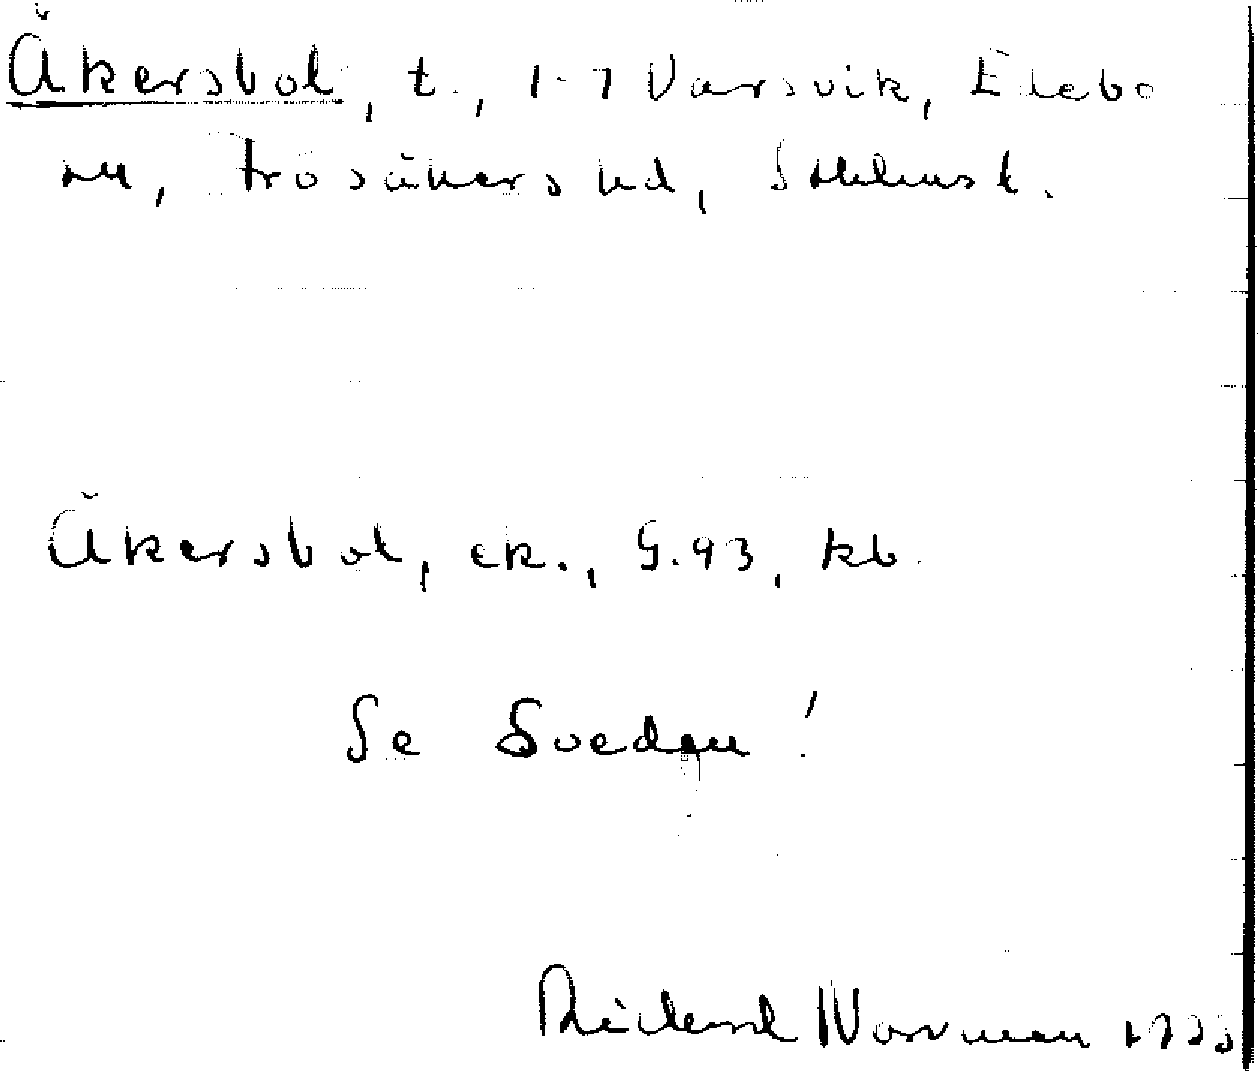 Åkersbol, t., 1-7 Varsvik, Elebo
sn, Frösåkers hd, Sthlms l.
Åkersbol, ek., 5.93, kb.
Se Sveden!
Rickard Norman